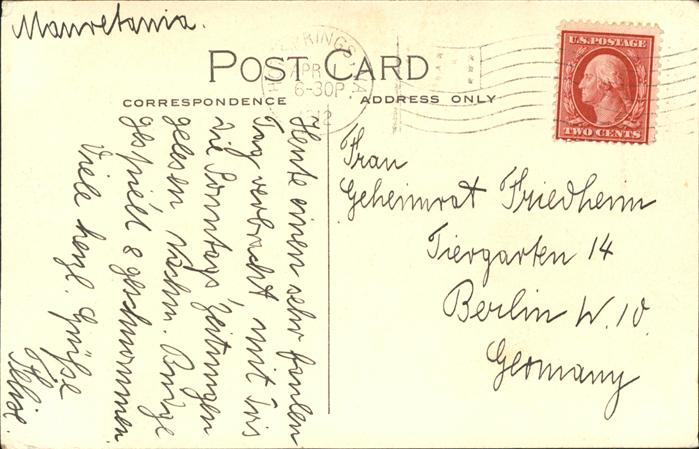 Mauretania.
POST CARD
CORRESPONDENCE
ADDRESS ONLY
SPRINGS, VA.
APR 1
6-30P
1912
U.S. POSTAGE
TWO CENTS
Heute einen sehr faulen
Tag verbracht mit Iris
die Sonntags Zeitungen
gelesen Nachm. Bridge
gespielt & geschwommen
Viele herzl. Grüße
Frau
Geheimrat Friedheim
Tiergarten 14
Berlin W. 10.
Germany